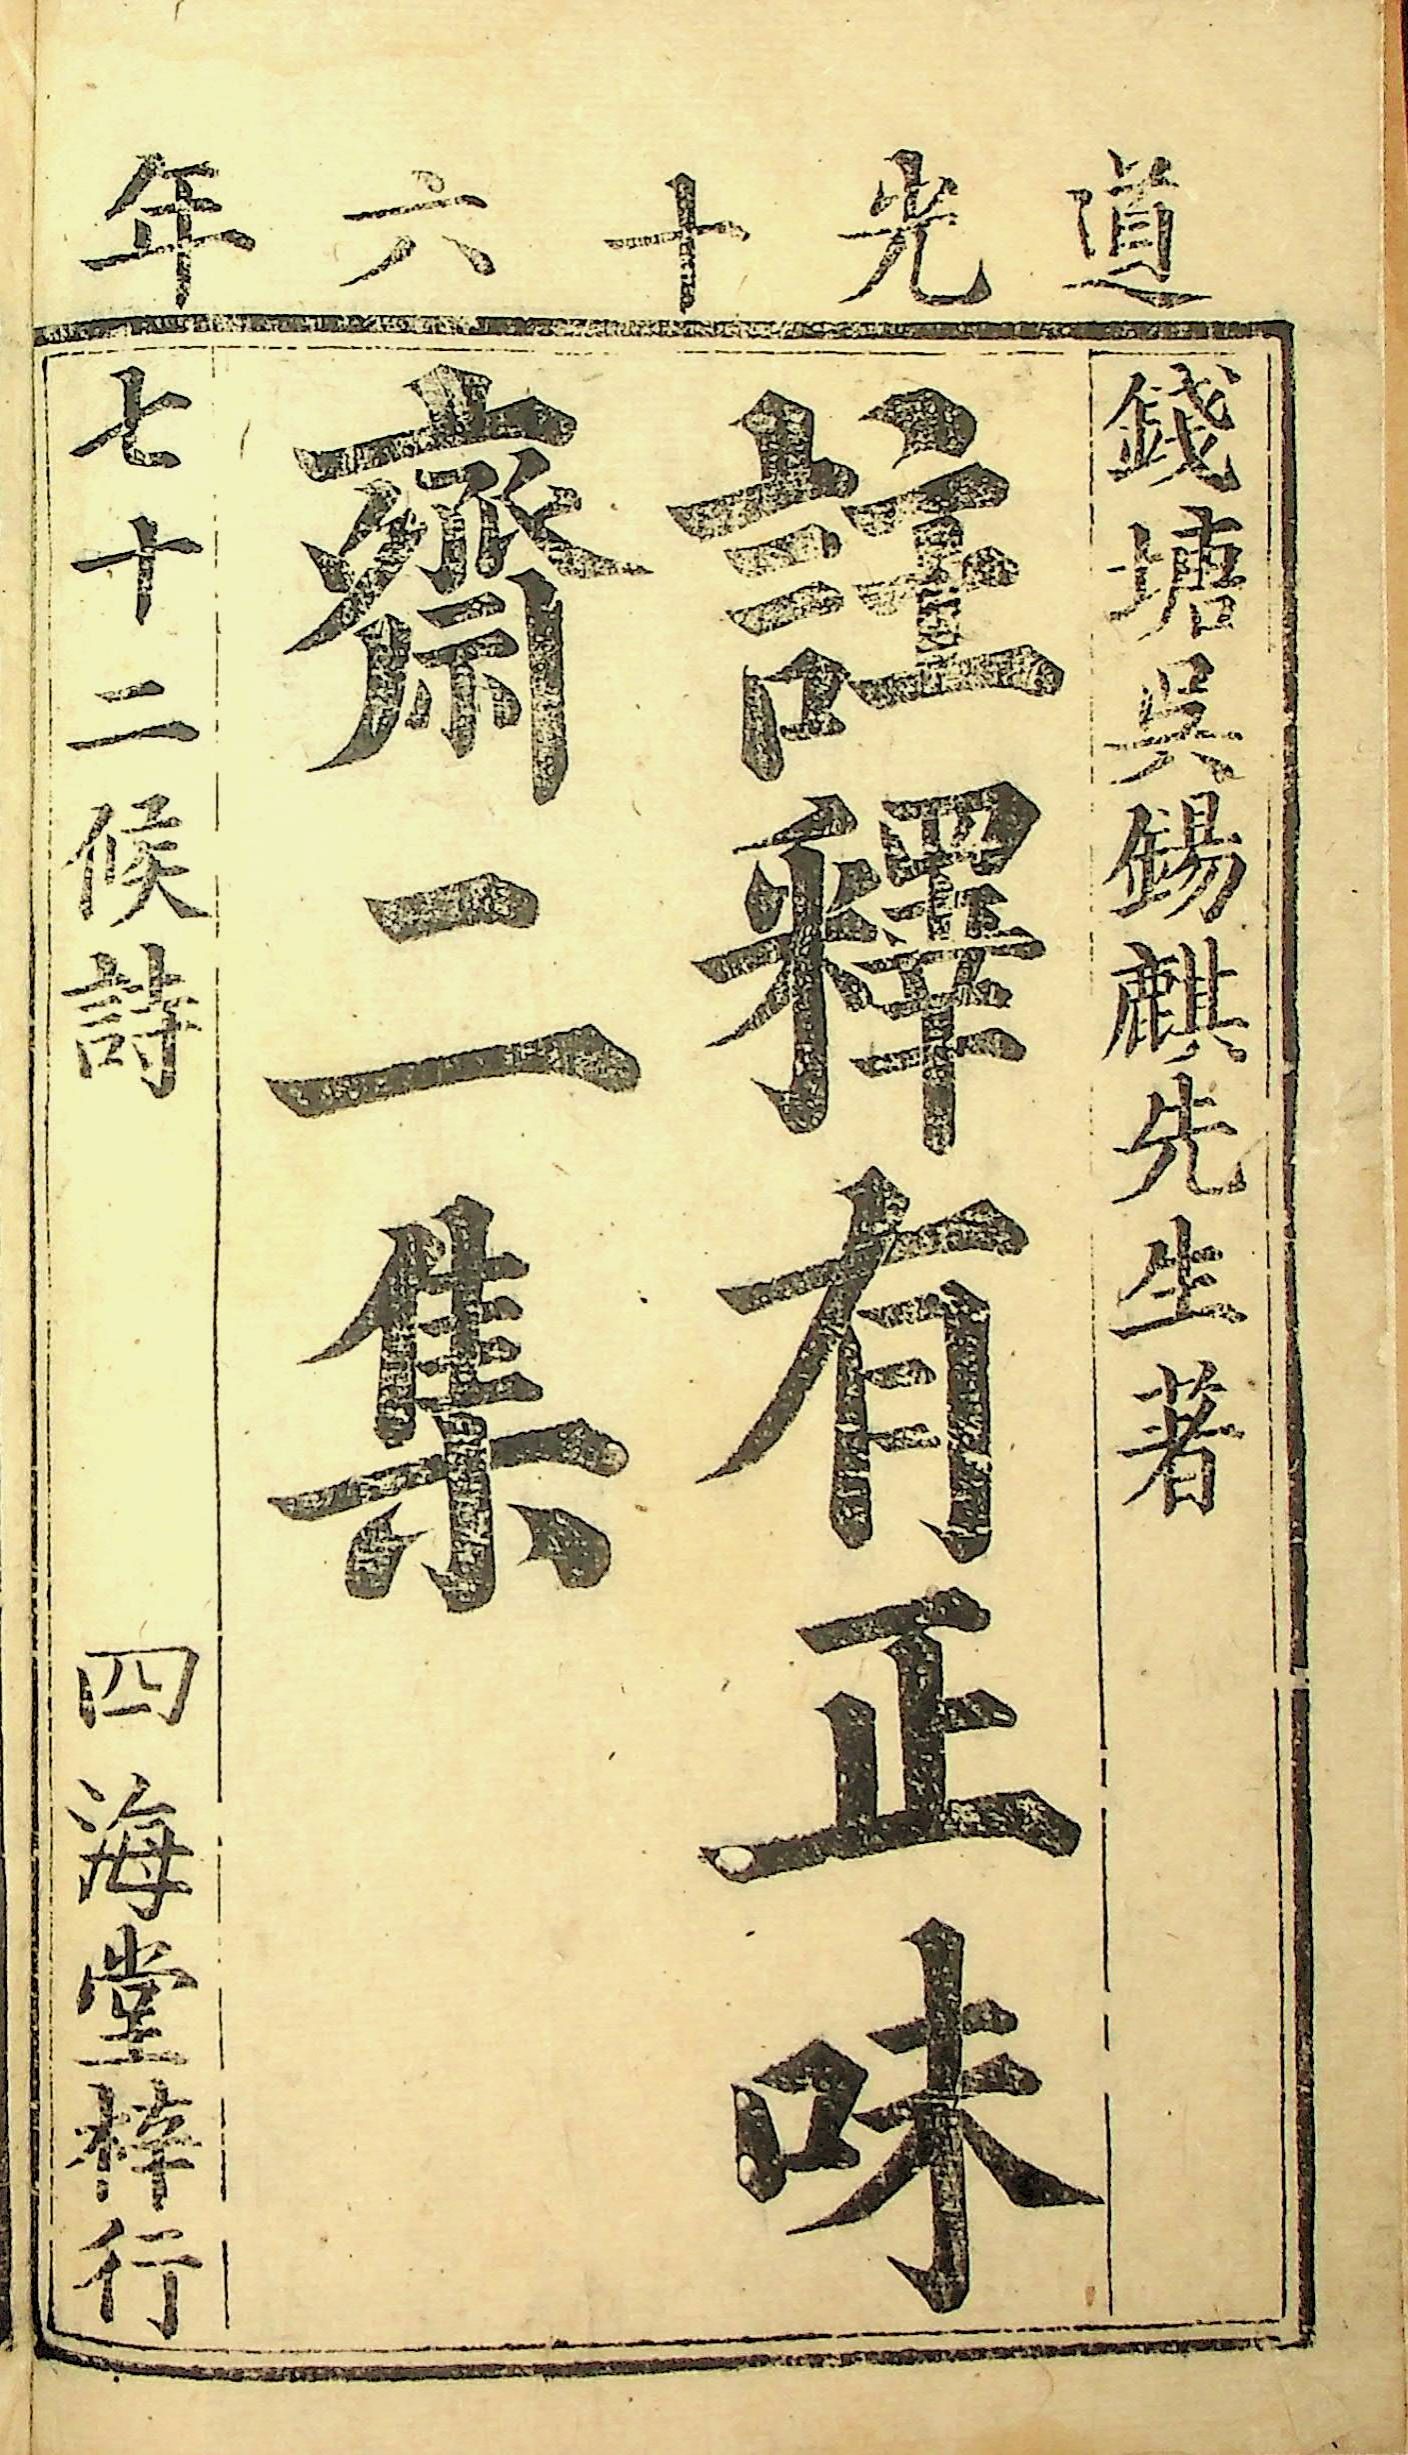 道光十六年
錢塘吳錫麒先生著
註釋有正味
齋二集
七十二候詩
四海堂梓行